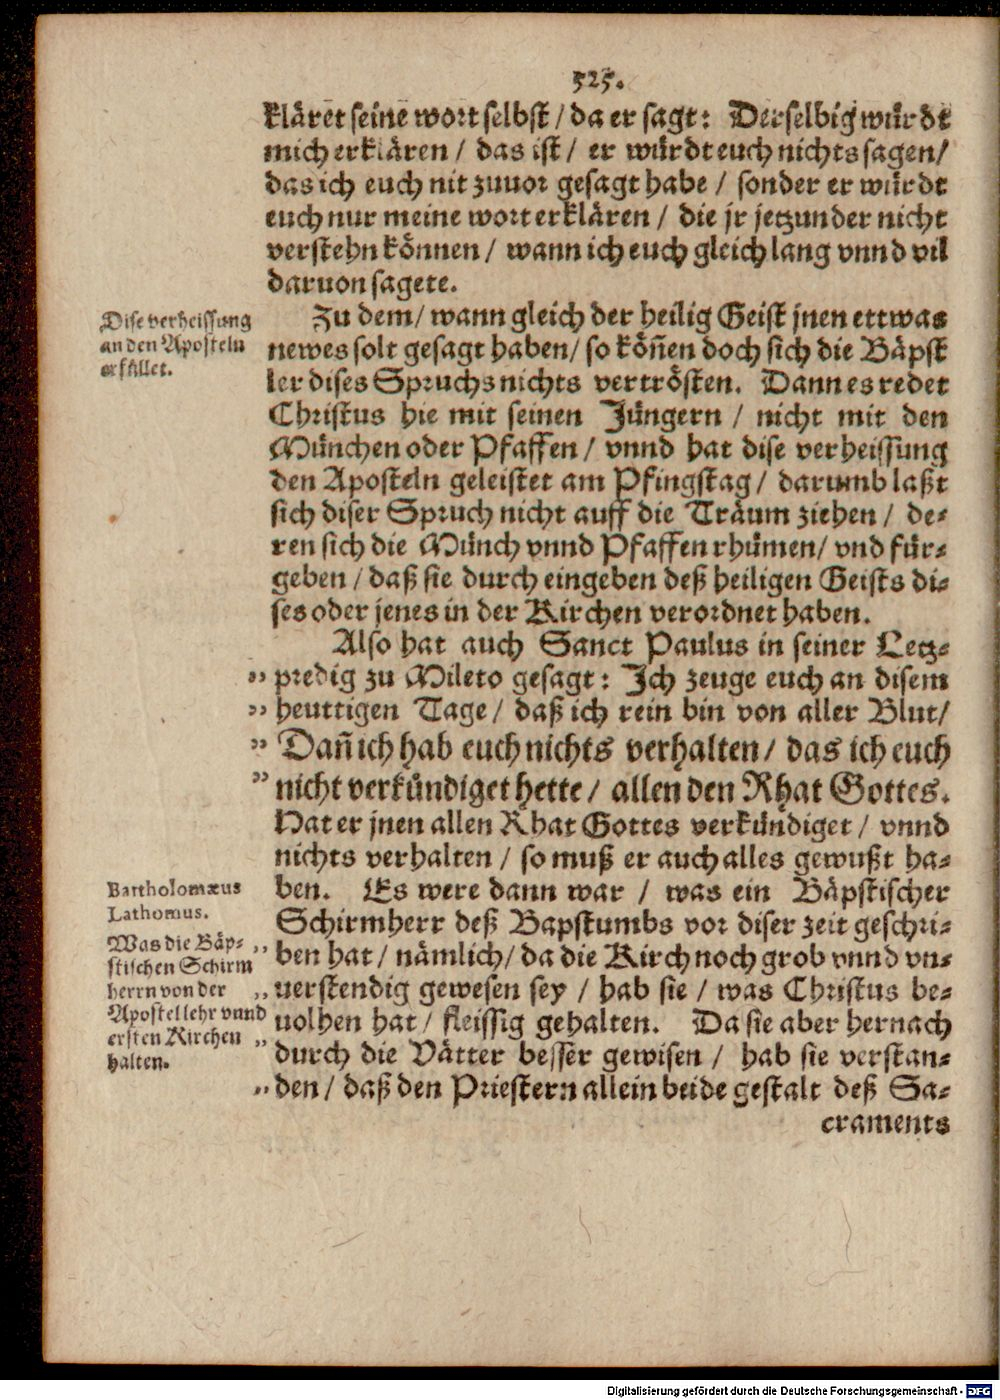 525.
kläret seine wort selbst / da er sagt: Derselbig würdt
mich erklären / das ist / er würdt euch nichts sagen /
das ich euch nit zuuor gesagt habe / sonder er würdt
euch nur meine wort erklären / die jr jetzunder nicht
verstehn können / wann ich euch gleich lang vnnd vil
daruon sagete.
Dise verheissung
an den Aposteln
erfüllet.
Zu dem / wann gleich der heilig Geist jnen ettwas
newes solt gesagt haben / so köñen doch sich die Bäpst
ler dises Spruchs nichts vertrösten. Dann es redet
Christus hie mit seinen Jüngern / nicht mit den
München oder Pfaffen / vnnd hat dise verheissung
den Aposteln geleistet am Pfingstag / darumb laßt
sich diser Spruch nicht auff die Träum ziehen / de-
ren sich die Münch vnnd Pfaffen rhümen / vnd für-
geben / daß sie durch eingeben deß heiligen Geists di-
ses oder jenes in der Kirchen verordnet haben.
Also hat auch Sanct Paulus in seiner Letz-
„ predig zu Mileto gesagt: Ich zeuge euch an disem
„ heuttigen Tage / daß ich rein bin von aller Blut /
„ Dañ ich hab euch nichts verhalten / das ich euch
„ nicht verkündiget hette / allen den Rhat Gottes.
Hat er jnen allen Rhat Gottes verkündiget / vnnd
nichts verhalten / so muß er auch alles gewußt ha-
ben. Es were dann war / was ein Bäpstischer
Schirmherr deß Bapstumbs vor diser zeit geschri-
„ ben hat / nämlich / da die Kirch noch grob vnnd vn-
„ uerstendig gewesen sey / hab sie / was Christus be-
uolhen hat / fleissig gehalten. Da sie aber hernach
„ durch die Vätter besser gewisen / hab sie verstan-
„ den / daß den Priestern allein beide gestalt deß Sa-
craments
Bartholomæus
Lathomus.
Was die Bäp-
stischen Schirm
herrn von der
Apostel lehr vnnd
ersten Kirchen
halten.
Digitalisierung gefördert durch die Deutsche Forschungsgemeinschaft - DFG